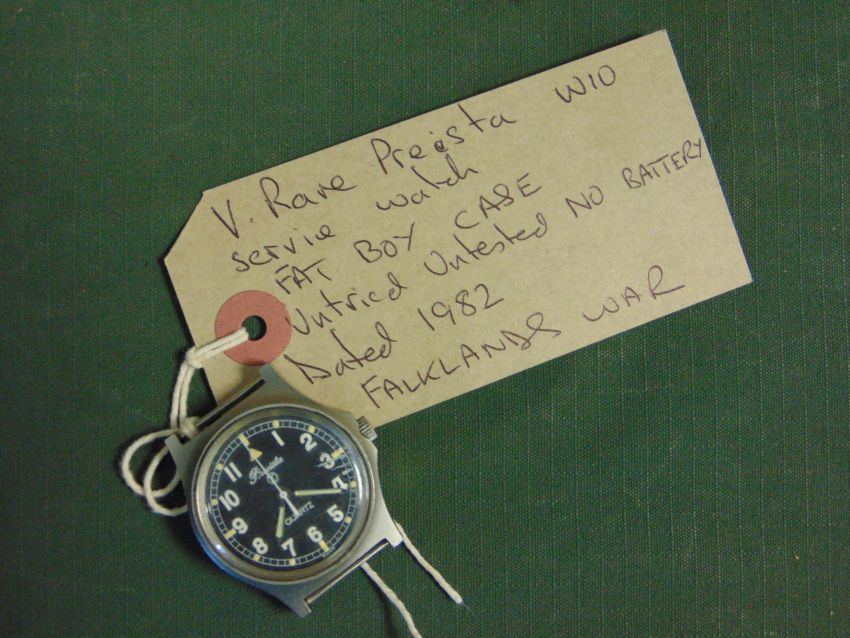 V. Rare Preista W10
servie watch
FAT BOY CASE
Untried Untested NO BATTERY
Dated 1982
FALKLANDS WAR
1
2
3
4
5
6
7
8
9
10
11
Precista
QUARTZ